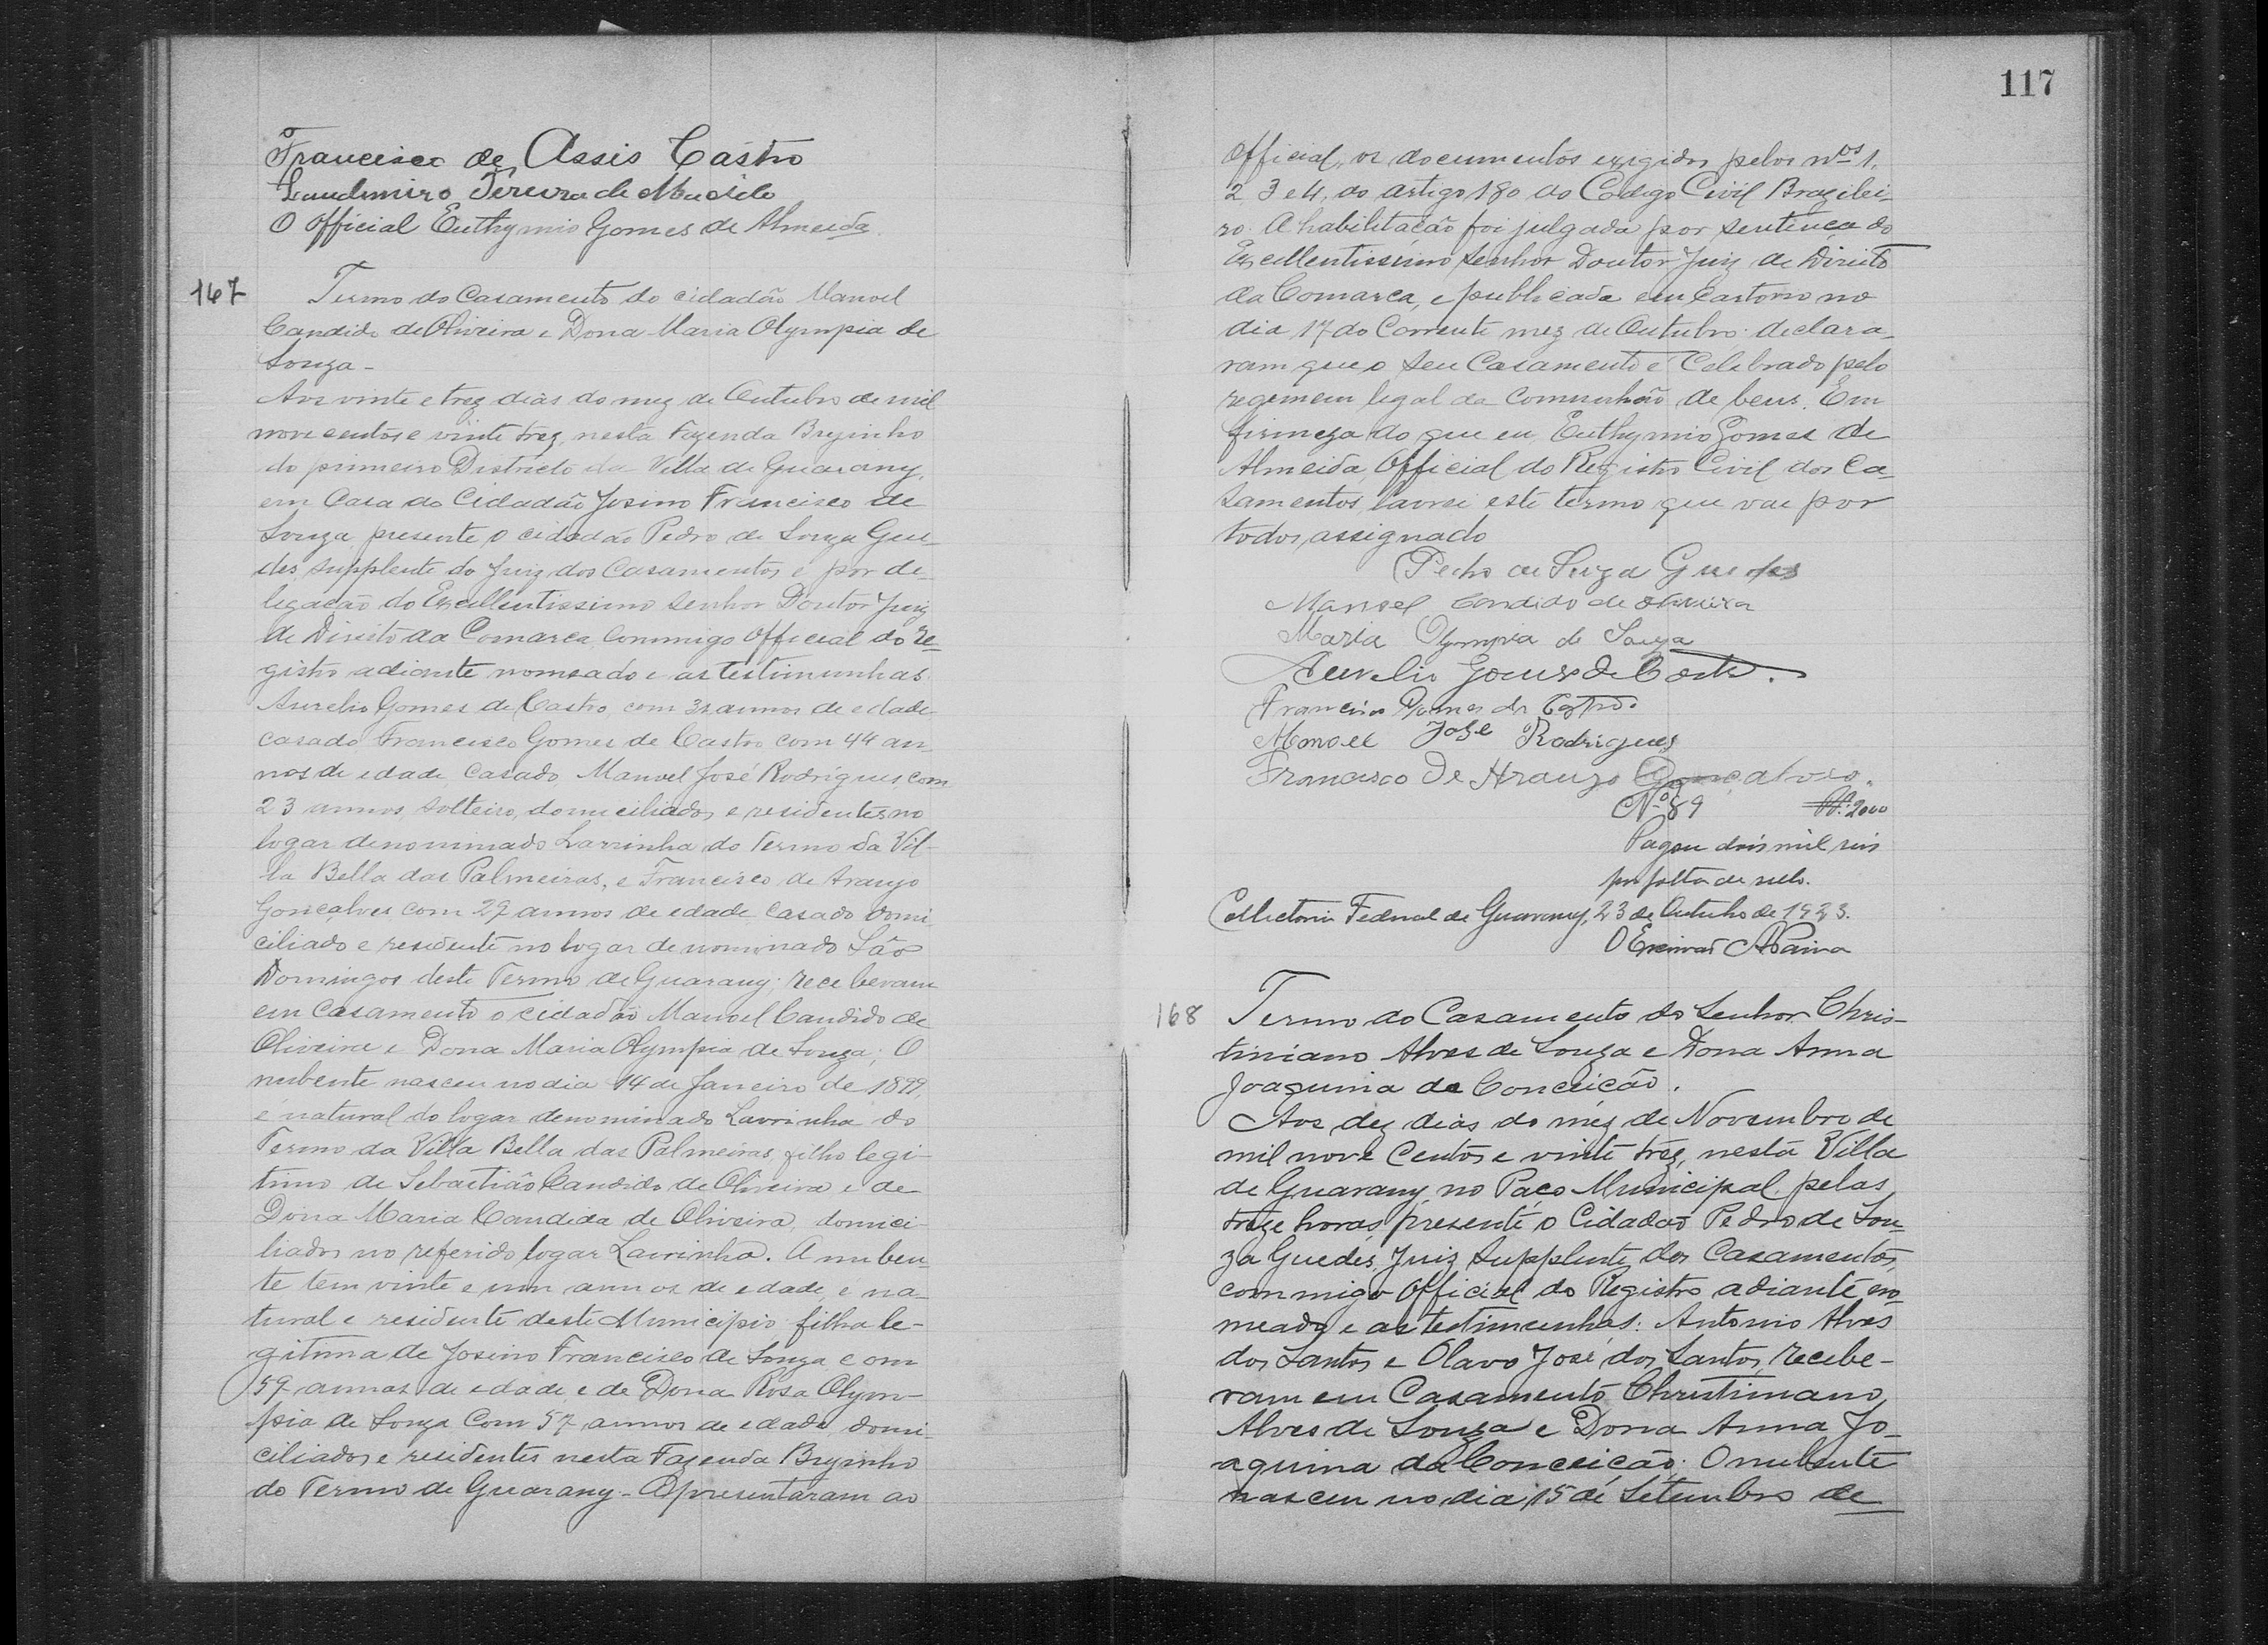 Francisco de Assis Castro
Laudimiro Pereira de
O Official Euthymio Gomes de Almeida
167
Termo do Casamento do cidadão Manoel
Candido de Oliveira e Dona Maria Olympia de
Souza -
Aos vinte e trez dias do mez de Outubro de mil
nove centos e vinte trez, nesta Fazenda Brejinho
do primeiro Districto da Villa de Guarany,
em Casa do Cidadão Josino Francisco de
Souza presente o cidadão Pedro de Souza Gue-
des, Supplente do Juiz dos Casamentos e por de-
legacão do Excellentissimo Senhor Doutor Juiz
de Direito da Comarca, Commigo Official do Re-
gistro adiante nomeado e as testimunhas
Aurelio Gomes de Castro, com 32 annos de edade
casado Francisco Gomes de Castro com 44 an-
nos de edade Casado, Manoel José Rodrigues, com
23 annos, Solteiro, domiciliados e residentes no
logar denominado Lavrinha do Termo da Vil-
la Bella das Palmeiras, e Francisco de Araujo
Gonçalves com 29 annos de edade Casado domi-
ciliado e residente no logar denominado São
Domingos deste Termo de Guarany; receberam
em Casamento o cidadão Manoel Candido de
Oliveira e Dona Maria Olympia de Souza; O
nubente nasceu no dia 14 de Janeiro de 1899,
é natural do logar denominado Lavrinha do
Termo da Villa Bella das Palmeiras, filho legi-
timo de Sebastião Candido de Oliveira e de
Dona Maria Candida de Oliveira, domici-
liados no referido logar Lavrinha. A nuben-
te tem vinte e um annos de edade, e na-
tural e residente deste Municipio filha le-
gitima de Josino Francisco de Souza com
59 annos de edade e de Dona Rosa Olym-
pia de Souza Com 57 annos de edade, domi-
ciliados e residentes nesta Fazenda Brejinho
do Termo de Guarany - Apresentaram ao
117
Official, os documentos exigidos pelos nos 1,
2, 3 e 4, do artigo 180 do Codigo Civil Brazilei-
ro. A habilitacão foi julgada por sentença do
Excellentissimo Senhor Doutor Juiz de Direito
da Comarca, e publicada em Cartorio no
dia 17 do Corrente mez de Outubro. declara-
ram que o seu Casamento é Celebrado pelo
regimem legal da Communhão de bens. Em
firmeza do que eu, Euthymio Gomes de
Almeida, Official do Registro Civil dos Ca-
samentos, lavrei este termo que vae por
todos assignado
Pedro de Souza Guedes
Manoel Candido de Oliveira
Maria Olympia de Souza
Aurelio Gomes de Castro.
Francisco Gomes de Castro.
Manoel José Rodrigues
Francisco de Araujo Gonçalves.
No 89 2000
Pagou dois mil reis
por falta de sello.
Collectoria Federal de Guarany, 23 de Outubro de 1923.
O Escrivão Paiva
168
Termo do Casamento do Senhor Chris-
tiniano Alves de Souza e Dona Anna
Joaquina da Conceicão.
Aos dez dias do mez de Novembro de
mil nove Centos e vinte trez, nesta Villa
de Guarany, no Paço Municipal, pelas
treze horas, presente o Cidadão Pedro de Sou-
za Guedes, Juiz Supplente dos Casamentos,
commigo Official do Registro adiante no-
meado e as testimunhas: Antonio Alves
dos Santos e Olavo José dos Santos, recebe-
ram em Casamento Christiniano
Alves de Souza e Dona Anna Jo-
aquina da Conceicão. O nubente
nasceu no dia 15 de Setembro de